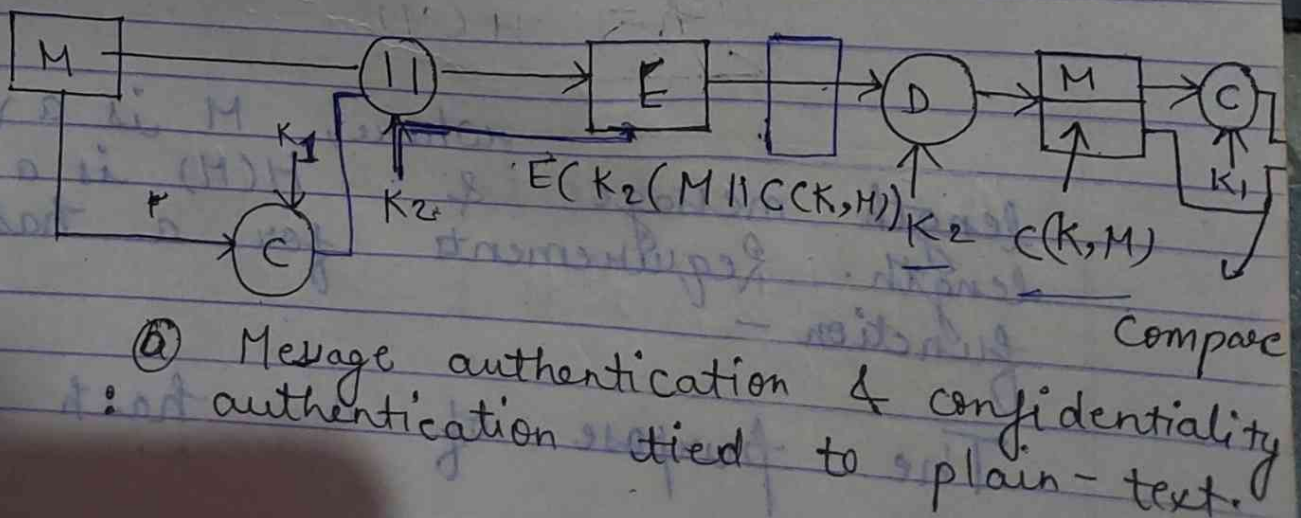 M
||
E
D
M
C
K1
K1
K2
E(K2(M||C(K,M))
K2
C(K,M)
C
Compare
(a) Message authentication & confidentiality
: authentication tied to plain-text.